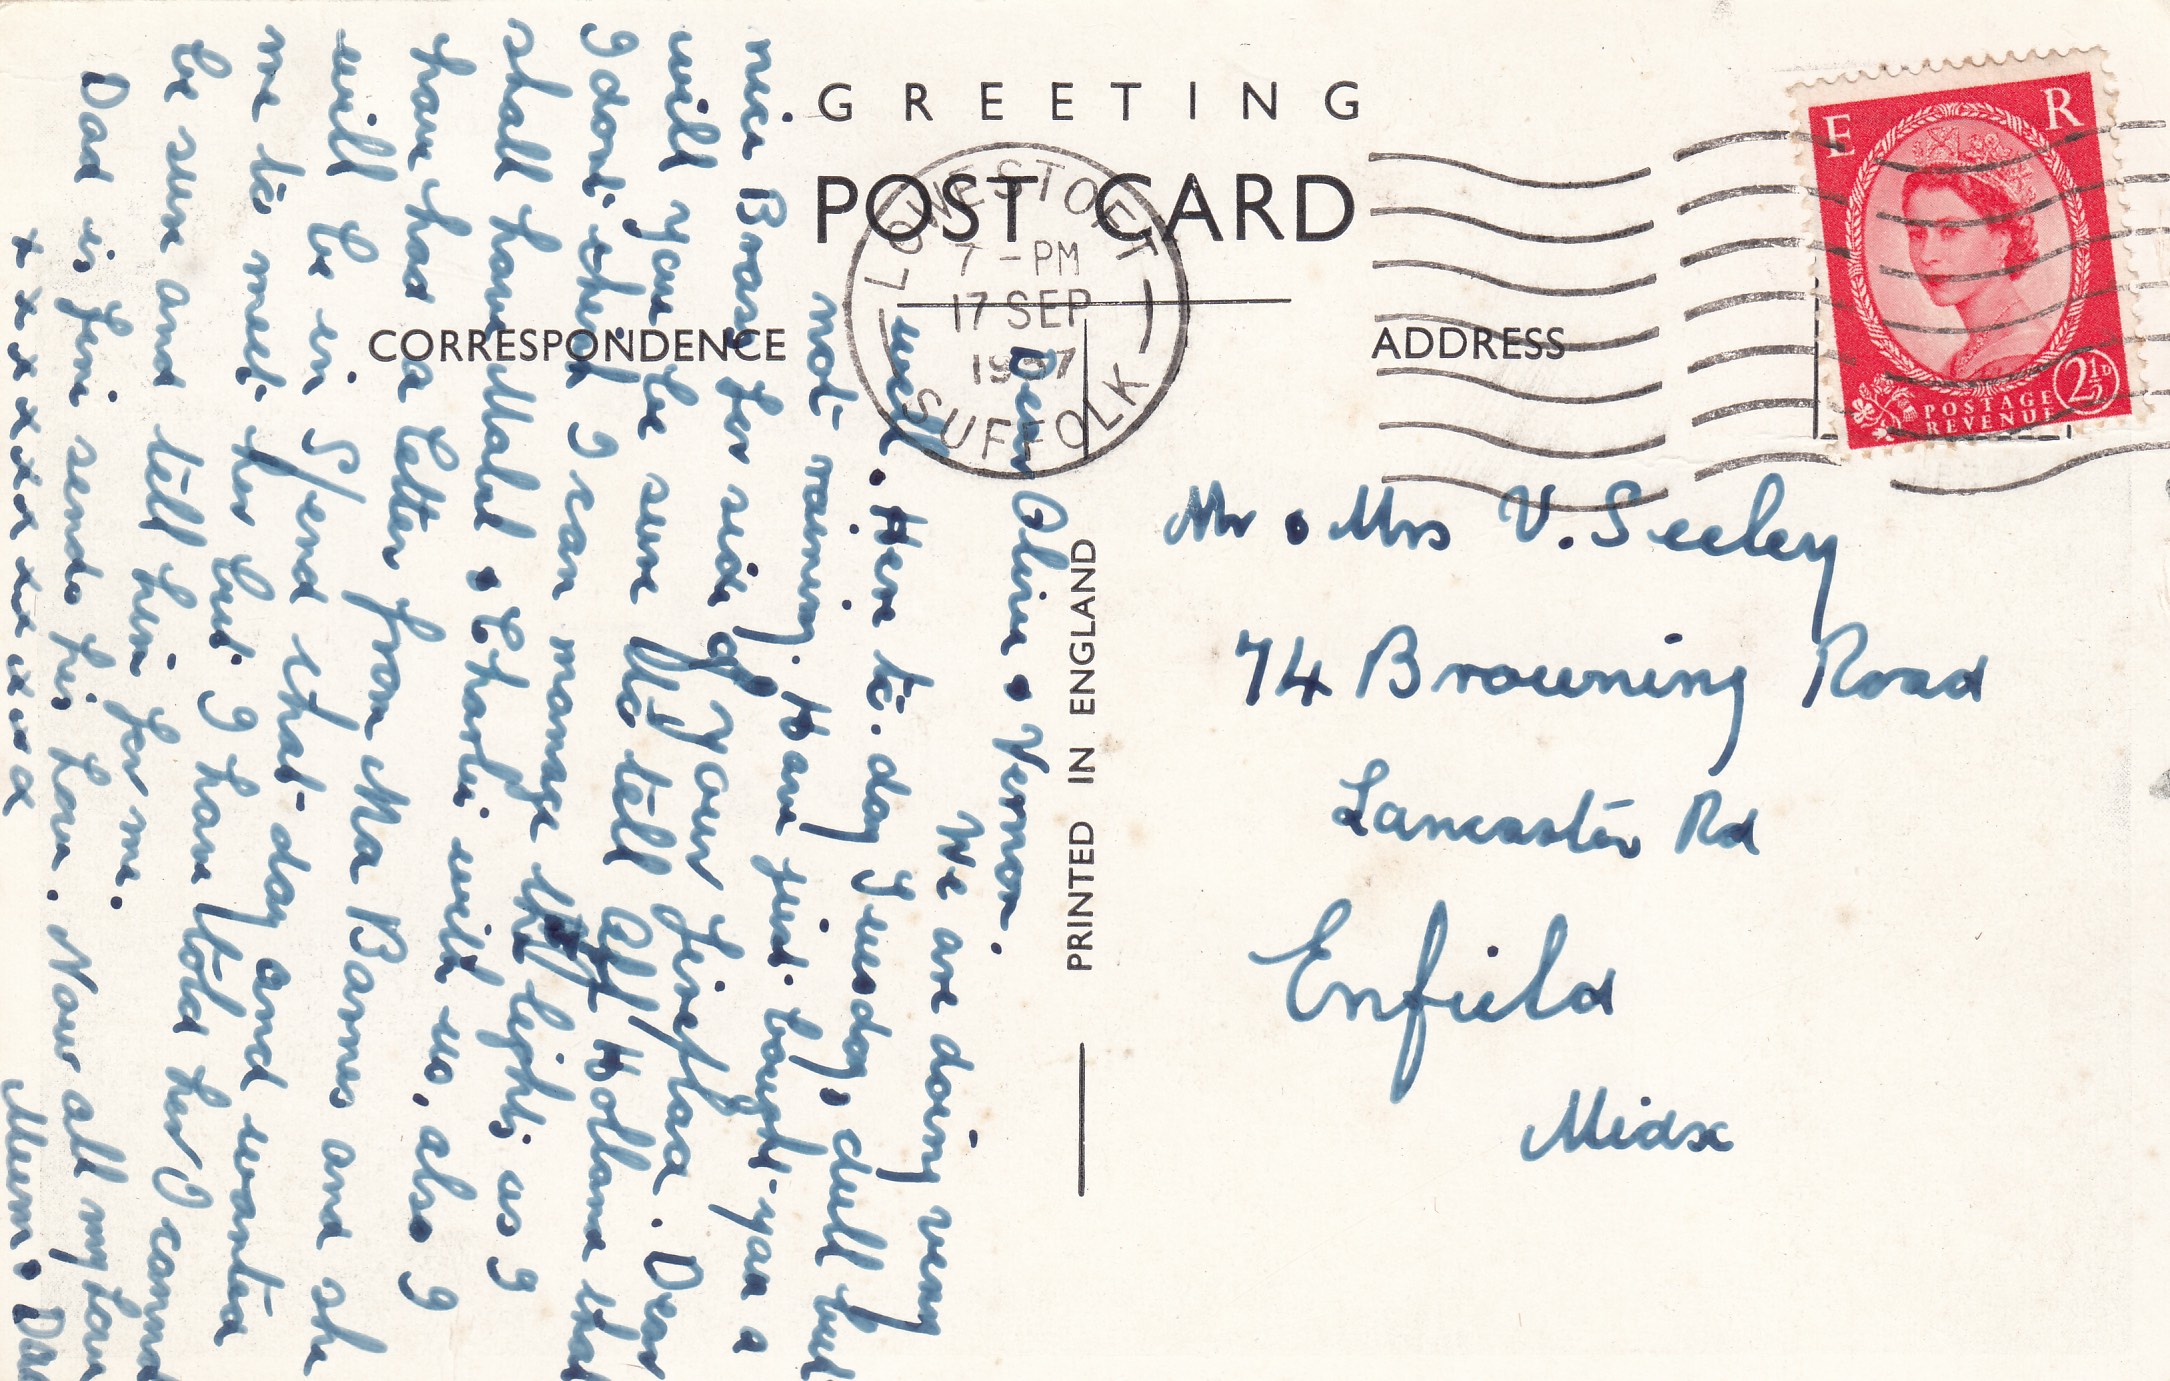 GREETING
POST CARD
LOWESTOFT
7-PM
17 SEP
1957
SUFFOLK
E R
POSTAGE
REVENUE
2½D
CORRESPONDENCE
ADDRESS
PRINTED IN ENGLAND
Mr & Mrs V. Seeley
74 Browning Road
Lancaster Rd
Enfield
Midsx
Dear Olive & Vernon.
We are doing very
well. Here to.day Tuesday, dull but
not raining. Have just bought you a
nice Brass for side of your fireplace. Dear
will you be sure to tell Alf Holland that
I dont think I can manage the lights as I
shall have Mabel & Charlie with us, also I
have had a letter from Ma Barnes and she
will be in S/end that day and wanted
me to meet her but I have told her I cannot
be sure and tell him for me.
Dad is fine sends his love. Now all my love
Mum & Dad
x x x x x x x x x x x x